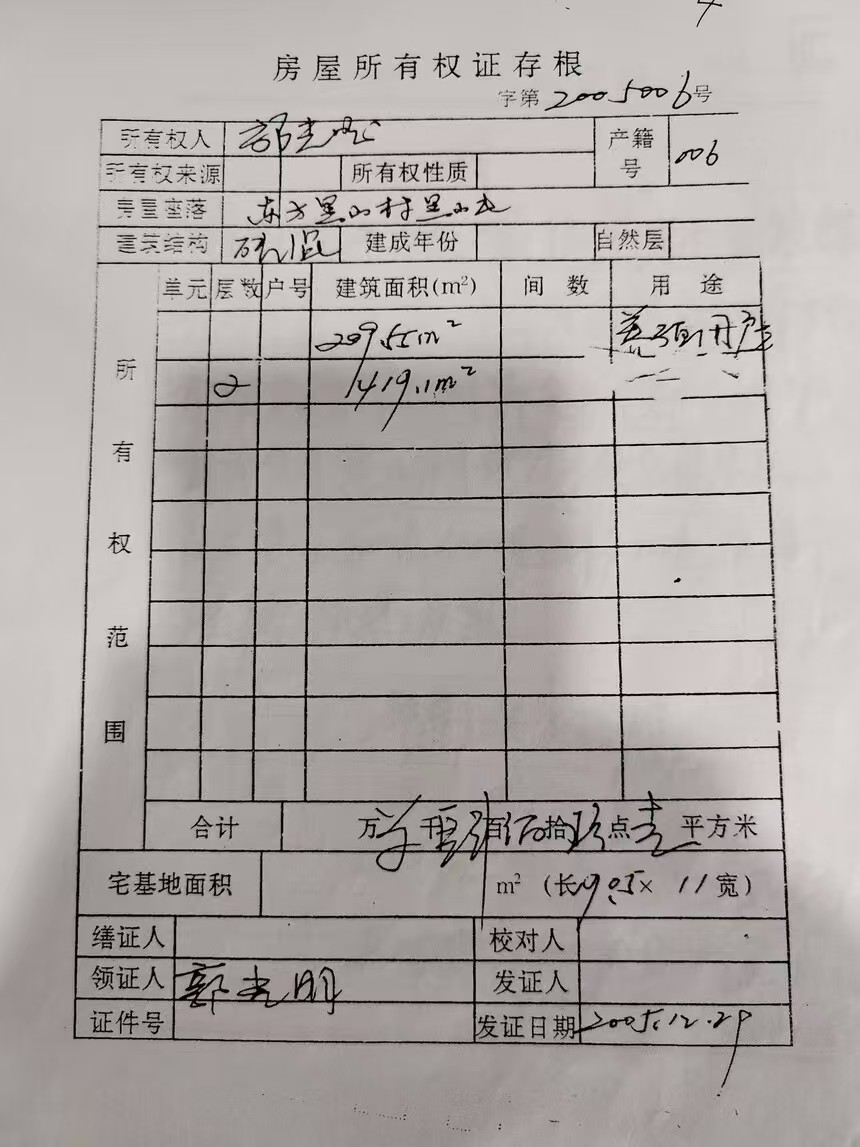 房屋所有权证存根
字第2005006号
所有权人 郭光明 产籍号 006
所有权来源 所有权性质
房屋座落 东方黑山村黑山
建筑结构 砖混 建成年份 自然层
所有权范围
单元 层数 户号 建筑面积(m²) 间数 用途
209.55m²
2 419.1m²
合计 万 千 肆百 拾玖点壹平方米
宅基地面积 m² (长19.05× 11宽)
缮证人 校对人
领证人 郭光明 发证人
证件号 发证日期 2005.12.29